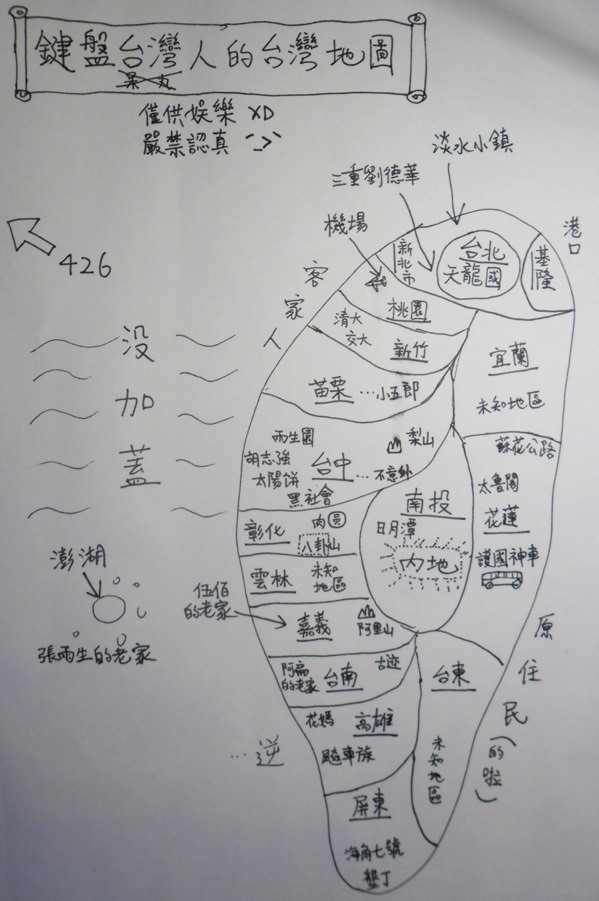 鍵盤台灣人的台灣地圖
僅供娛樂 XD
嚴禁認真 ˋ_>ˊ
淡水小鎮
三重劉德華
機場
港口
426
客家人
新北市
台北
天龍國
基隆
桃園
清大
交大
新竹
宜蘭
未知地區
苗栗…小五郎
沒加蓋
蘇花公路
雨生園
胡志強
太陽餅
台中
黑社會
梨山
…不意外
太魯閣
花蓮
護國神車
南投
日月潭
內地
彰化
肉圓
八卦山
雲林
未知
地區
澎湖
張雨生的老家
伍佰
的老家
嘉義
阿里山
原住民(的啦)
阿扁
的老家
台南
古迹
台東
未知地區
…逆
花媽
高雄
飆車族
屏東
海角七號
墾丁